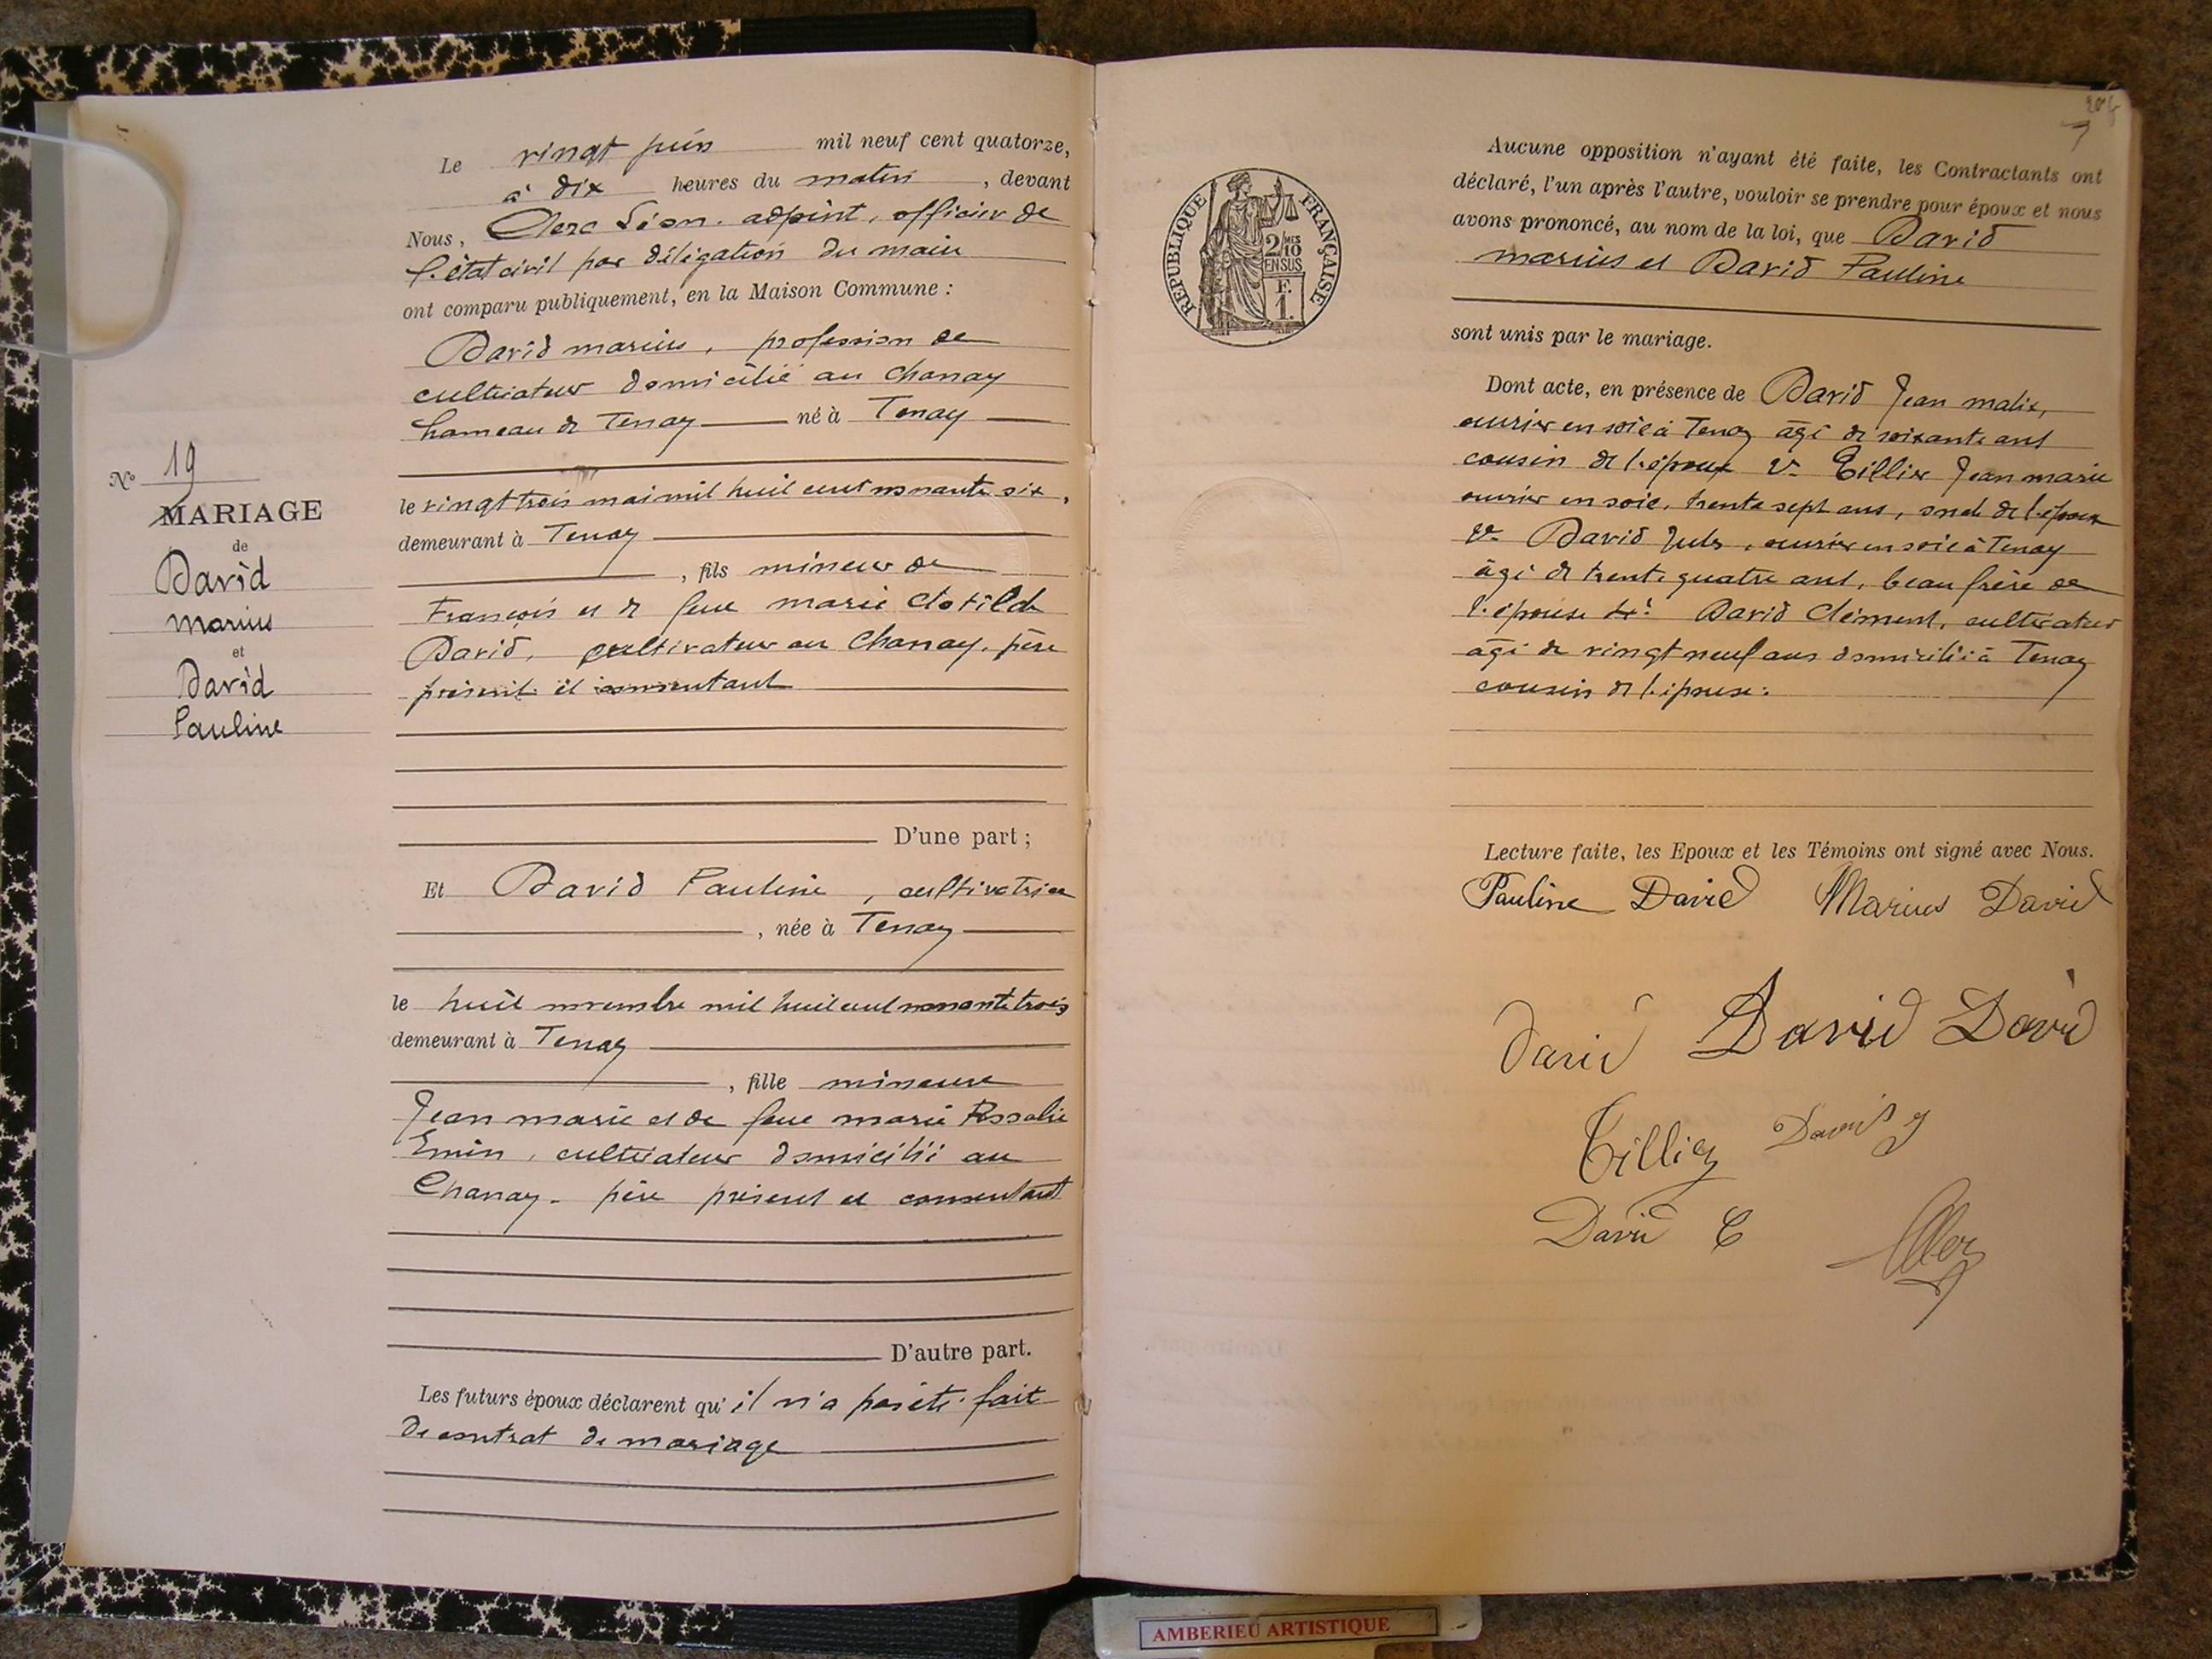 N° 19
MARIAGE
de
David
Marius
et
David
Pauline
Le vingt juin mil neuf cent quatorze,
à dix heures du matin, devant
Nous, Clerc Léon. adjoint, officier de
l'état civil par délégation du maire
ont comparu publiquement, en la Maison Commune :
David marius, profession de
cultivateur domicilié au Chanay
hameau de Tenay né à Tenay
le vingt trois mai mil huit cent nonante six,
demeurant à Tenay
, fils mineur de
François et de feue marie Clotilde
David, cultivateur au Chanay, père
présent et consentant
D'une part ;
Et David Pauline, cultivatrice
, née à Tenay
le huit novembre mil huit cent nonante trois
demeurant à Tenay
, fille mineure
Jean marie et de feue marie Rosalie
Emin, cultivateur domicilié au
Chanay. père présent et consentant
D'autre part.
Les futurs époux déclarent qu'il n'a pas été fait
de contrat de mariage
7
RÉPUBLIQUE FRANÇAISE
2/10 MES
EN SUS
F.
1.
Aucune opposition n'ayant été faite, les Contractants ont
déclaré, l'un après l'autre, vouloir se prendre pour époux et nous
avons prononcé, au nom de la loi, que David
marius et David Pauline
sont unis par le mariage.
Dont acte, en présence de David Jean
ouvrier en soie à Tenay âgé de soixante ans
cousin de l'époux 2° Tillier Jean marie
ouvrier en soie, trente sept ans, oncle de l'époux
David Jules, ouvrier en soie à Tenay
âgé de trente quatre ans, beau frère de
l'épouse 4° David Clément, cultivateur
âgé de vingt neuf ans domicilié à Tenay
cousin de l'épouse.
Lecture faite, les Epoux et les Témoins ont signé avec Nous.
Pauline David Marius David
David David David
Tillier David J
David C Clerc
AMBERIEU ARTISTIQUE